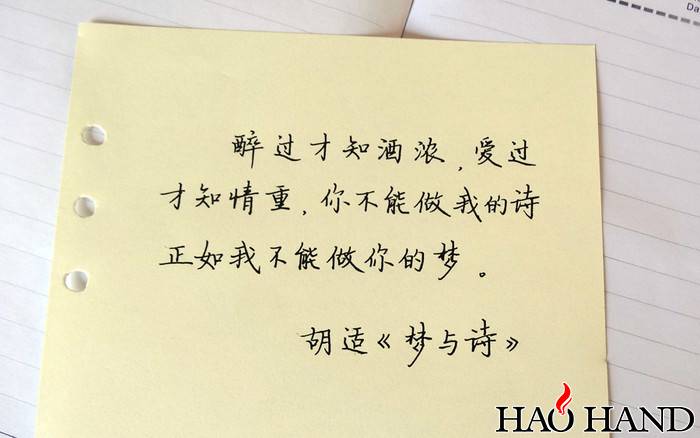 Da
醉过才知酒浓,爱过
才知情重,你不能做我的诗
正如我不能做你的梦。
胡适《梦与诗》
HAO HAND